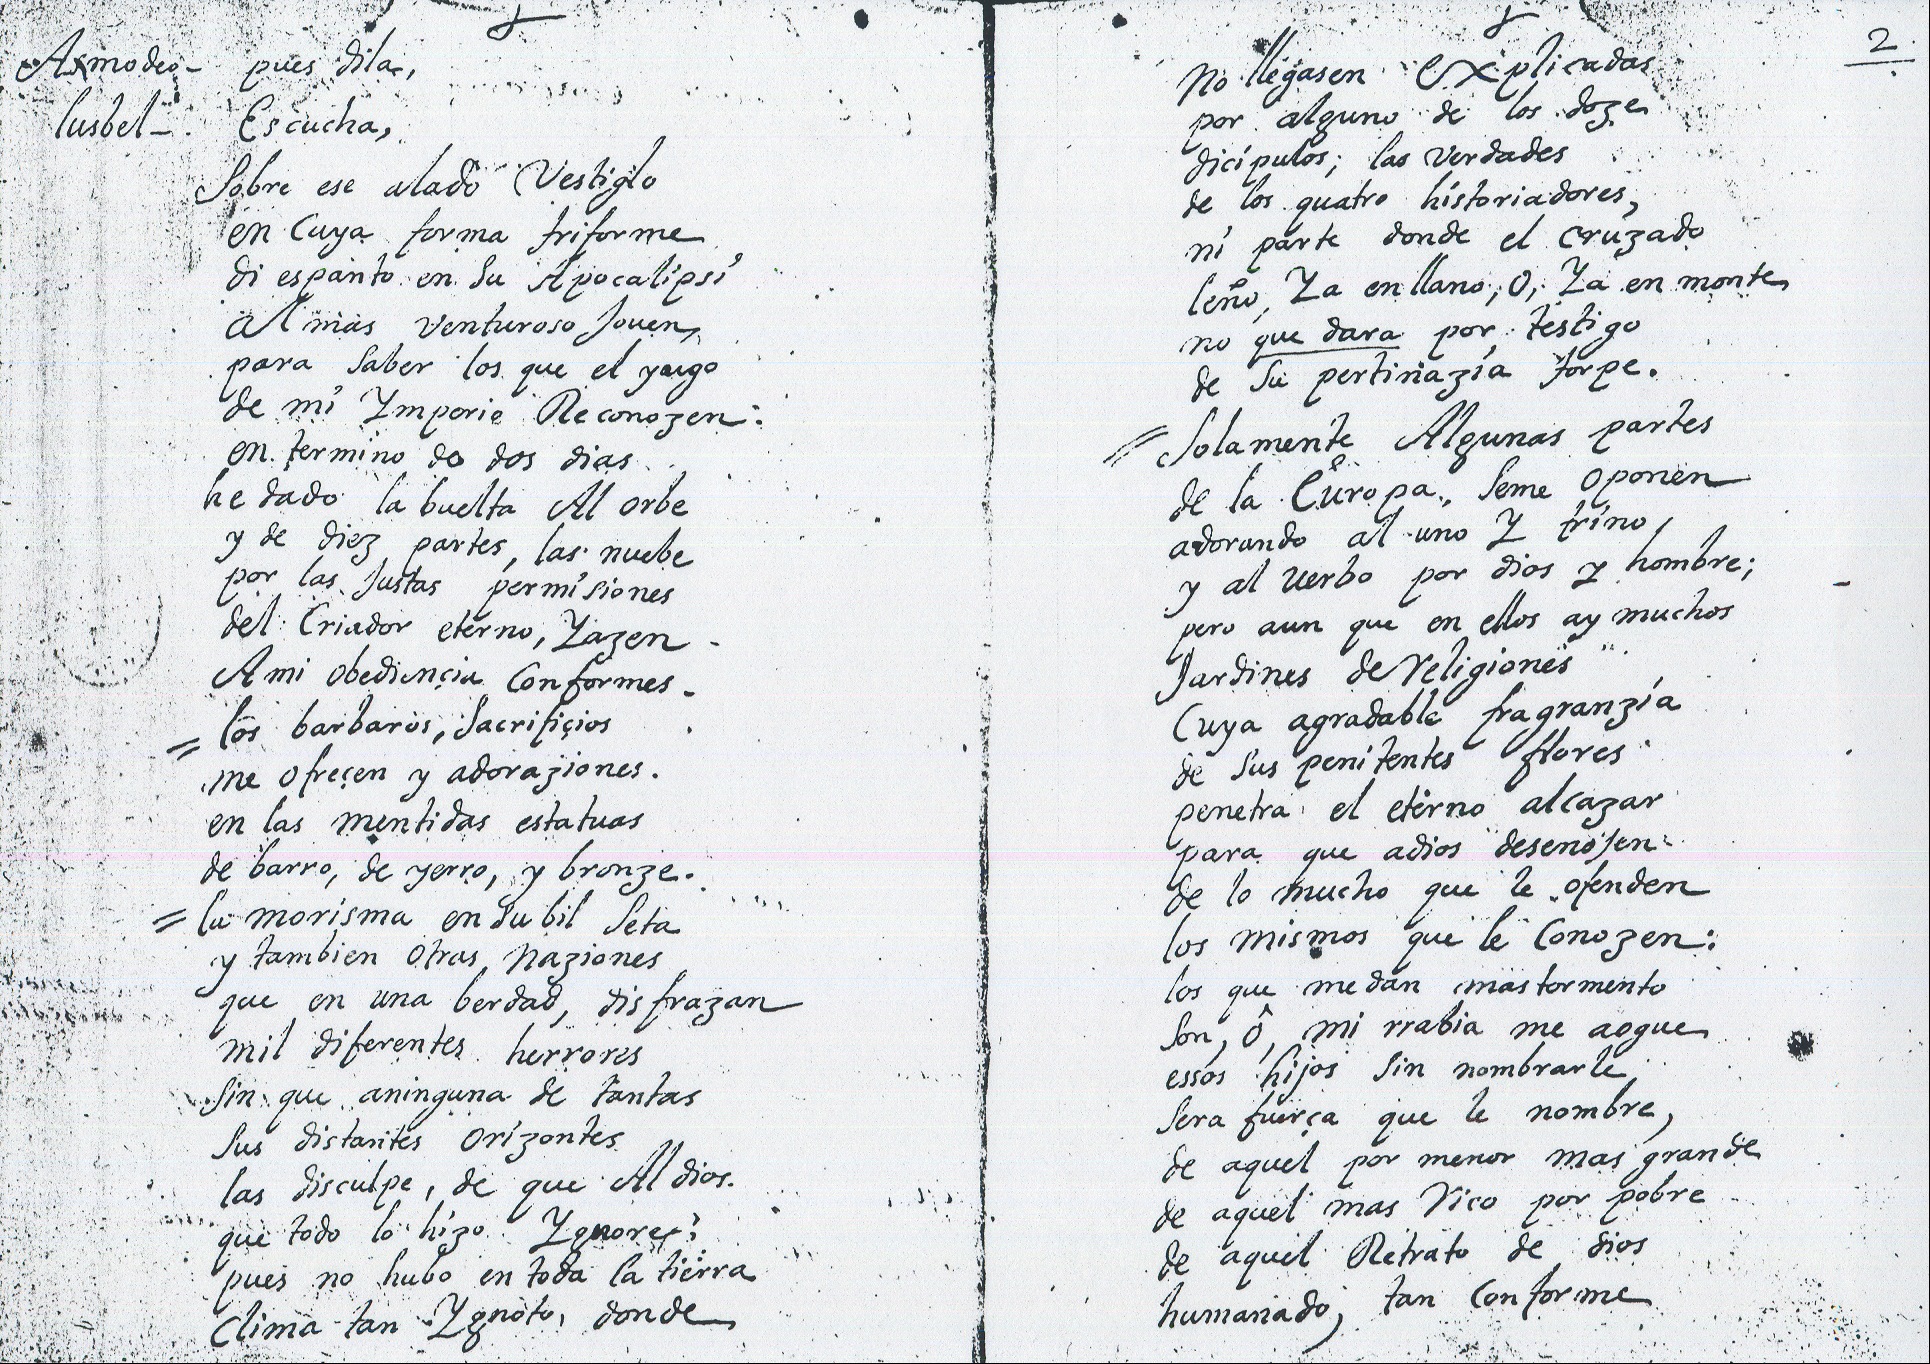 Asmodeo- pues dila,
lusbel-. Escucha,
Sobre ese alado Vestiglo
en Cuya forma triforme
di espanto en su Apocalipsi
al mas venturoso Joven,
para saber los que el yugo
de mi Ymperio Reconozen:
en termino de dos dias
he dado la buelta Al orbe
y de diez partes, las nuebe
por las Justas permisiones
del Criador eterno, Yazen-
A mi obediençia Conformes-
= los barbaros, Sacrifiçios
me ofreçen y adoraziones.
en las mentidas estatuas
de barro, de yerro, y bronze.
= la morisma en su bil Seta
y tambien otras Naziones
que en una berdad, disfrazan
mil diferentes herrores
Sin que aninguna de tantas
Sus distantes Orizontes
las disculpe, de que Al dios.
que todo lo hizo Ygnore;
pues no hubo en toda la tierra
Clima tan Ygnoto, donde
2
No llegasen Explicadas
por alguno de los doze
dicípulos; las verdades
de los quatro historiadores,
ni parte donde el cruzado
leño, Ya en llano, O, Ya en monte
no que dara por testigo
de Su pertinazia torpe.
= Solamente Algunas partes
de la Europa, Seme oponen
adorando al uno Y trino,
y al Verbo por dios y hombre;
pero aun que en ellos ay muchos
Jardines de Religiones
Cuya agradable fragranzia
de Sus penitentes flores
penetra el eterno alcazar
para que adios desenojen:
de lo mucho que le ofenden
los mismos que le Conozen:
los que medan mas tormento
Son, ô, mi rrabia me aogue
essos hijos Sin nombrarle
Sera fuerça que le nombre,
de aquel por menor mas grande
de aquel mas Rico por pobre
de aquel Retrato de dios
humanado, tan Conforme